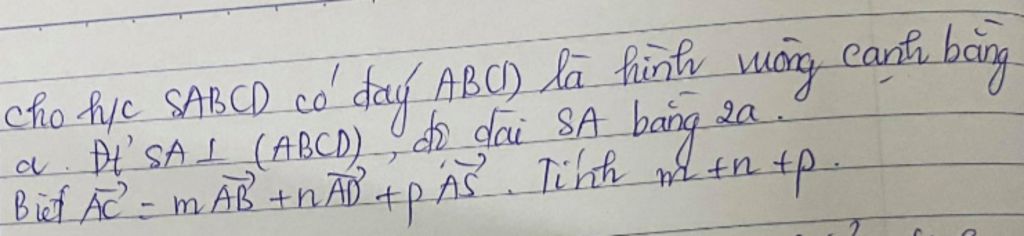 cho h/c SABCD có đáy ABCD là hình vuông cạnh bằng
a. Đt' SA ⊥ (ABCD), độ dài SA bằng 2a.
Biết AC→ = m AB→ + n AD→ + p AS→. Tính m + n + p.